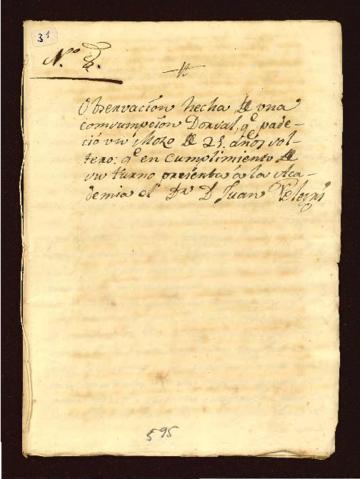 31
N.º 2.
Observacion hecha de una
comsumpcion Dorsal, q.e pade-
ció un Mozo de 25. años sol-
tero: q.e en cumplimiento de
su turno presenta à la Aca-
demia el Dr. D. Juan
595